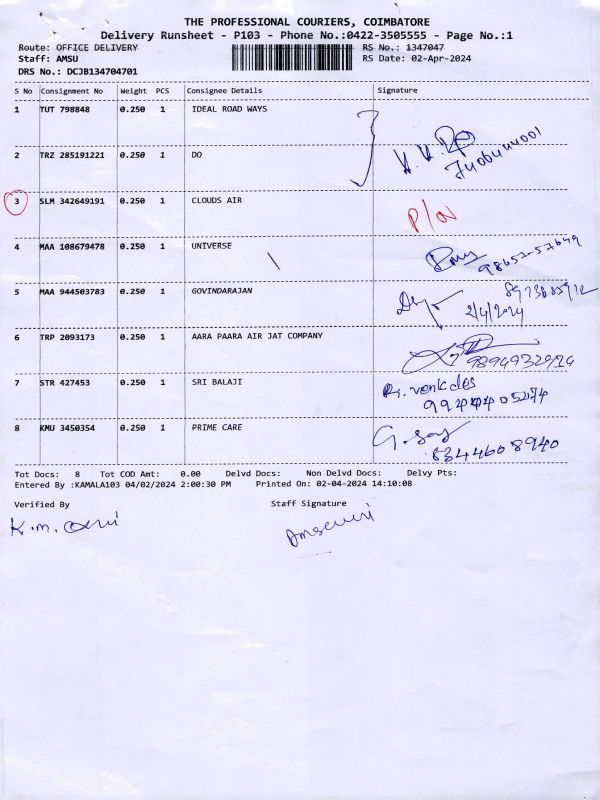 THE PROFESSIONAL COURIERS, COIMBATORE
Delivery Runsheet - P103 - Phone No.:0422-3505555 - Page No.:1
Route: OFFICE DELIVERY RS No.: 1347047
Staff: AMSU RS Date: 02-Apr-2024
DRS No.: DCJB134704701
S No Consignment No Weight PCS Consignee Details Signature
1 TUT 798848 0.250 1 IDEAL ROAD WAYS
2 TRZ 285191221 0.250 1 DO
3 SLM 342649191 0.250 1 CLOUDS AIR
4 MAA 108679478 0.250 1 UNIVERSE
5 MAA 944503783 0.250 1 GOVINDARAJAN 2/4/2024
6 TRP 2093173 0.250 1 AARA PAARA AIR JAT COMPANY
7 STR 427453 0.250 1 SRI BALAJI
8 KMU 3450354 0.250 1 PRIME CARE 8344608940
Tot Docs: 8 Tot COD Amt: 0.00 Delvd Docs: Non Delvd Docs: Delvy Pts:
Entered By :KAMALA103 04/02/2024 2:00:30 PM Printed On: 02-04-2024 14:10:08
Verified By Staff Signature
K.m.